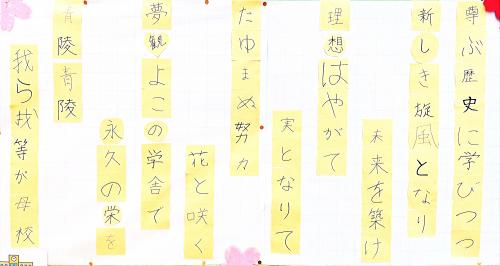 尊ぶ歴史に学びつつ
新しき旋風となり
未来を築け
理想はやがて
実となりて
たゆまぬ努力
花と咲く
夢観よこの学舎で
永久の栄を
青陵青陵
我ら我等が母校